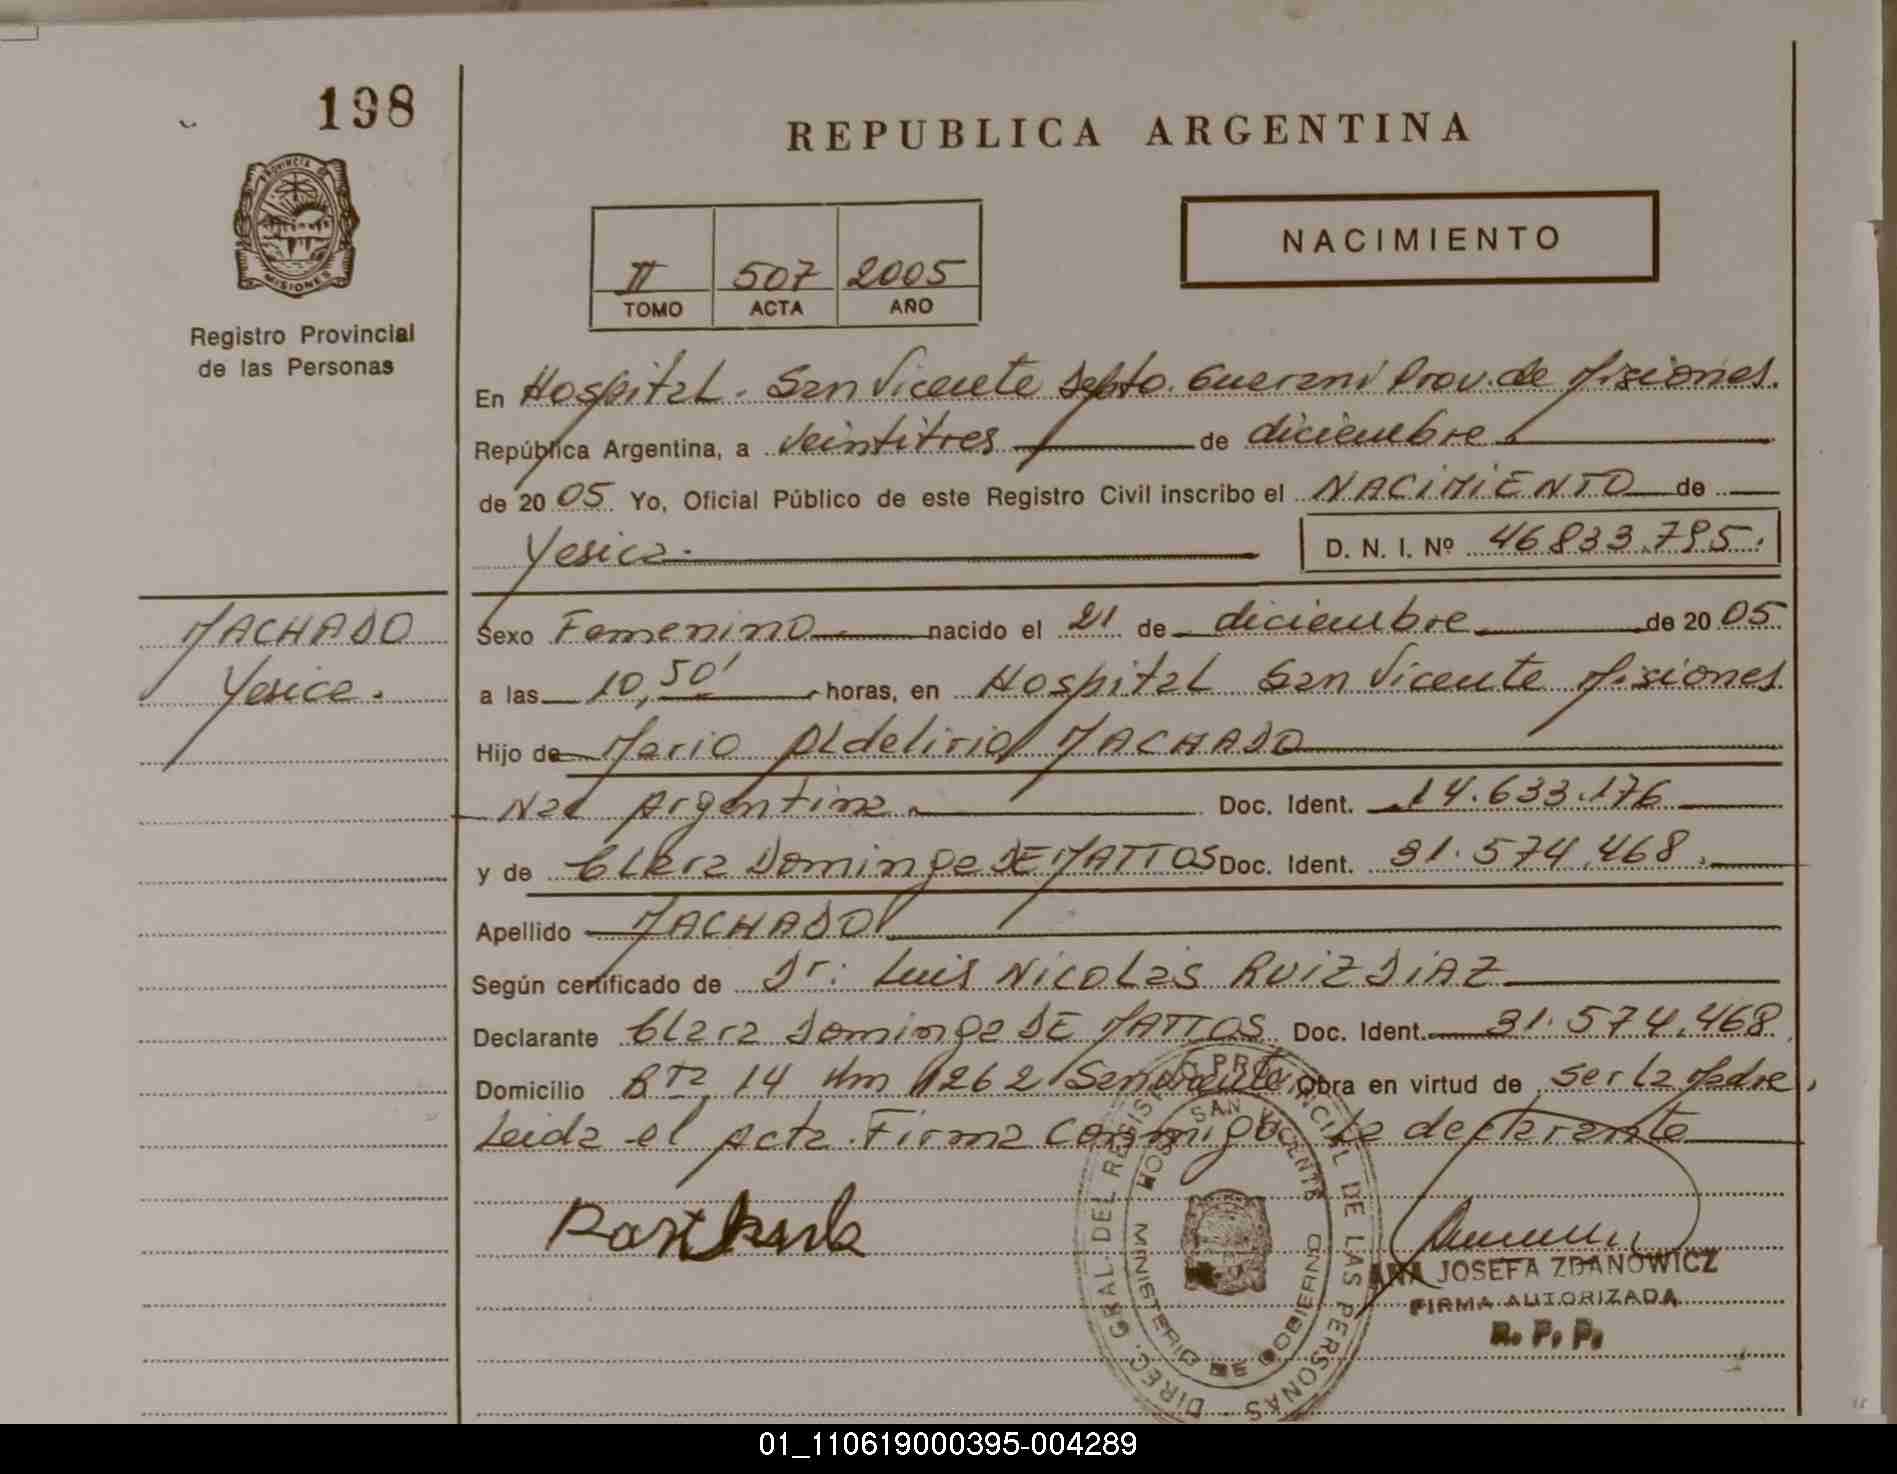 198
PROVINCIA
MISIONES
Registro Provincial
de las Personas
REPUBLICA ARGENTINA
II 507 2005
TOMO ACTA AÑO
NACIMIENTO
En Hospital. San Vicente Depto. Guarani Prov. de Misiones.
República Argentina, a veintitres de diciembre
de 20 05 Yo, Oficial Público de este Registro Civil inscribo el NACIMIENTO de
Yesica. D. N. I. Nº 46833.795.
MACHADO
Yesica.
Sexo Femenino nacido el 21 de diciembre de 20 05
a las 10,50' horas, en Hospital San Vicente Misiones
Hijo de Mario Aldelirio MACHADO
Nac Argentina. Doc. Ident. 14.633.176
y de Clara Dominga DE MATTOS Doc. Ident. 31.574.468.
Apellido MACHADO
Según certificado de Dr: Luis Nicolas RUIZ DIAZ
Declarante Clara Dominga DE MATTOS Doc. Ident. 31.574.468
Domicilio Rta 14 Km 1262 San Vicente Obra en virtud de ser la Madre,
Leida el Acta. Firma conmigo la declarante
DIREC. GRAL. DEL REGISTRO PROVINCIAL DE LAS PERSONAS
HOSP. SAN VICENTE
MINISTERIO DE GOBIERNO
ANA JOSEFA ZDANOWICZ
FIRMA AUTORIZADA
R. P. P.
01_110619000395-004289